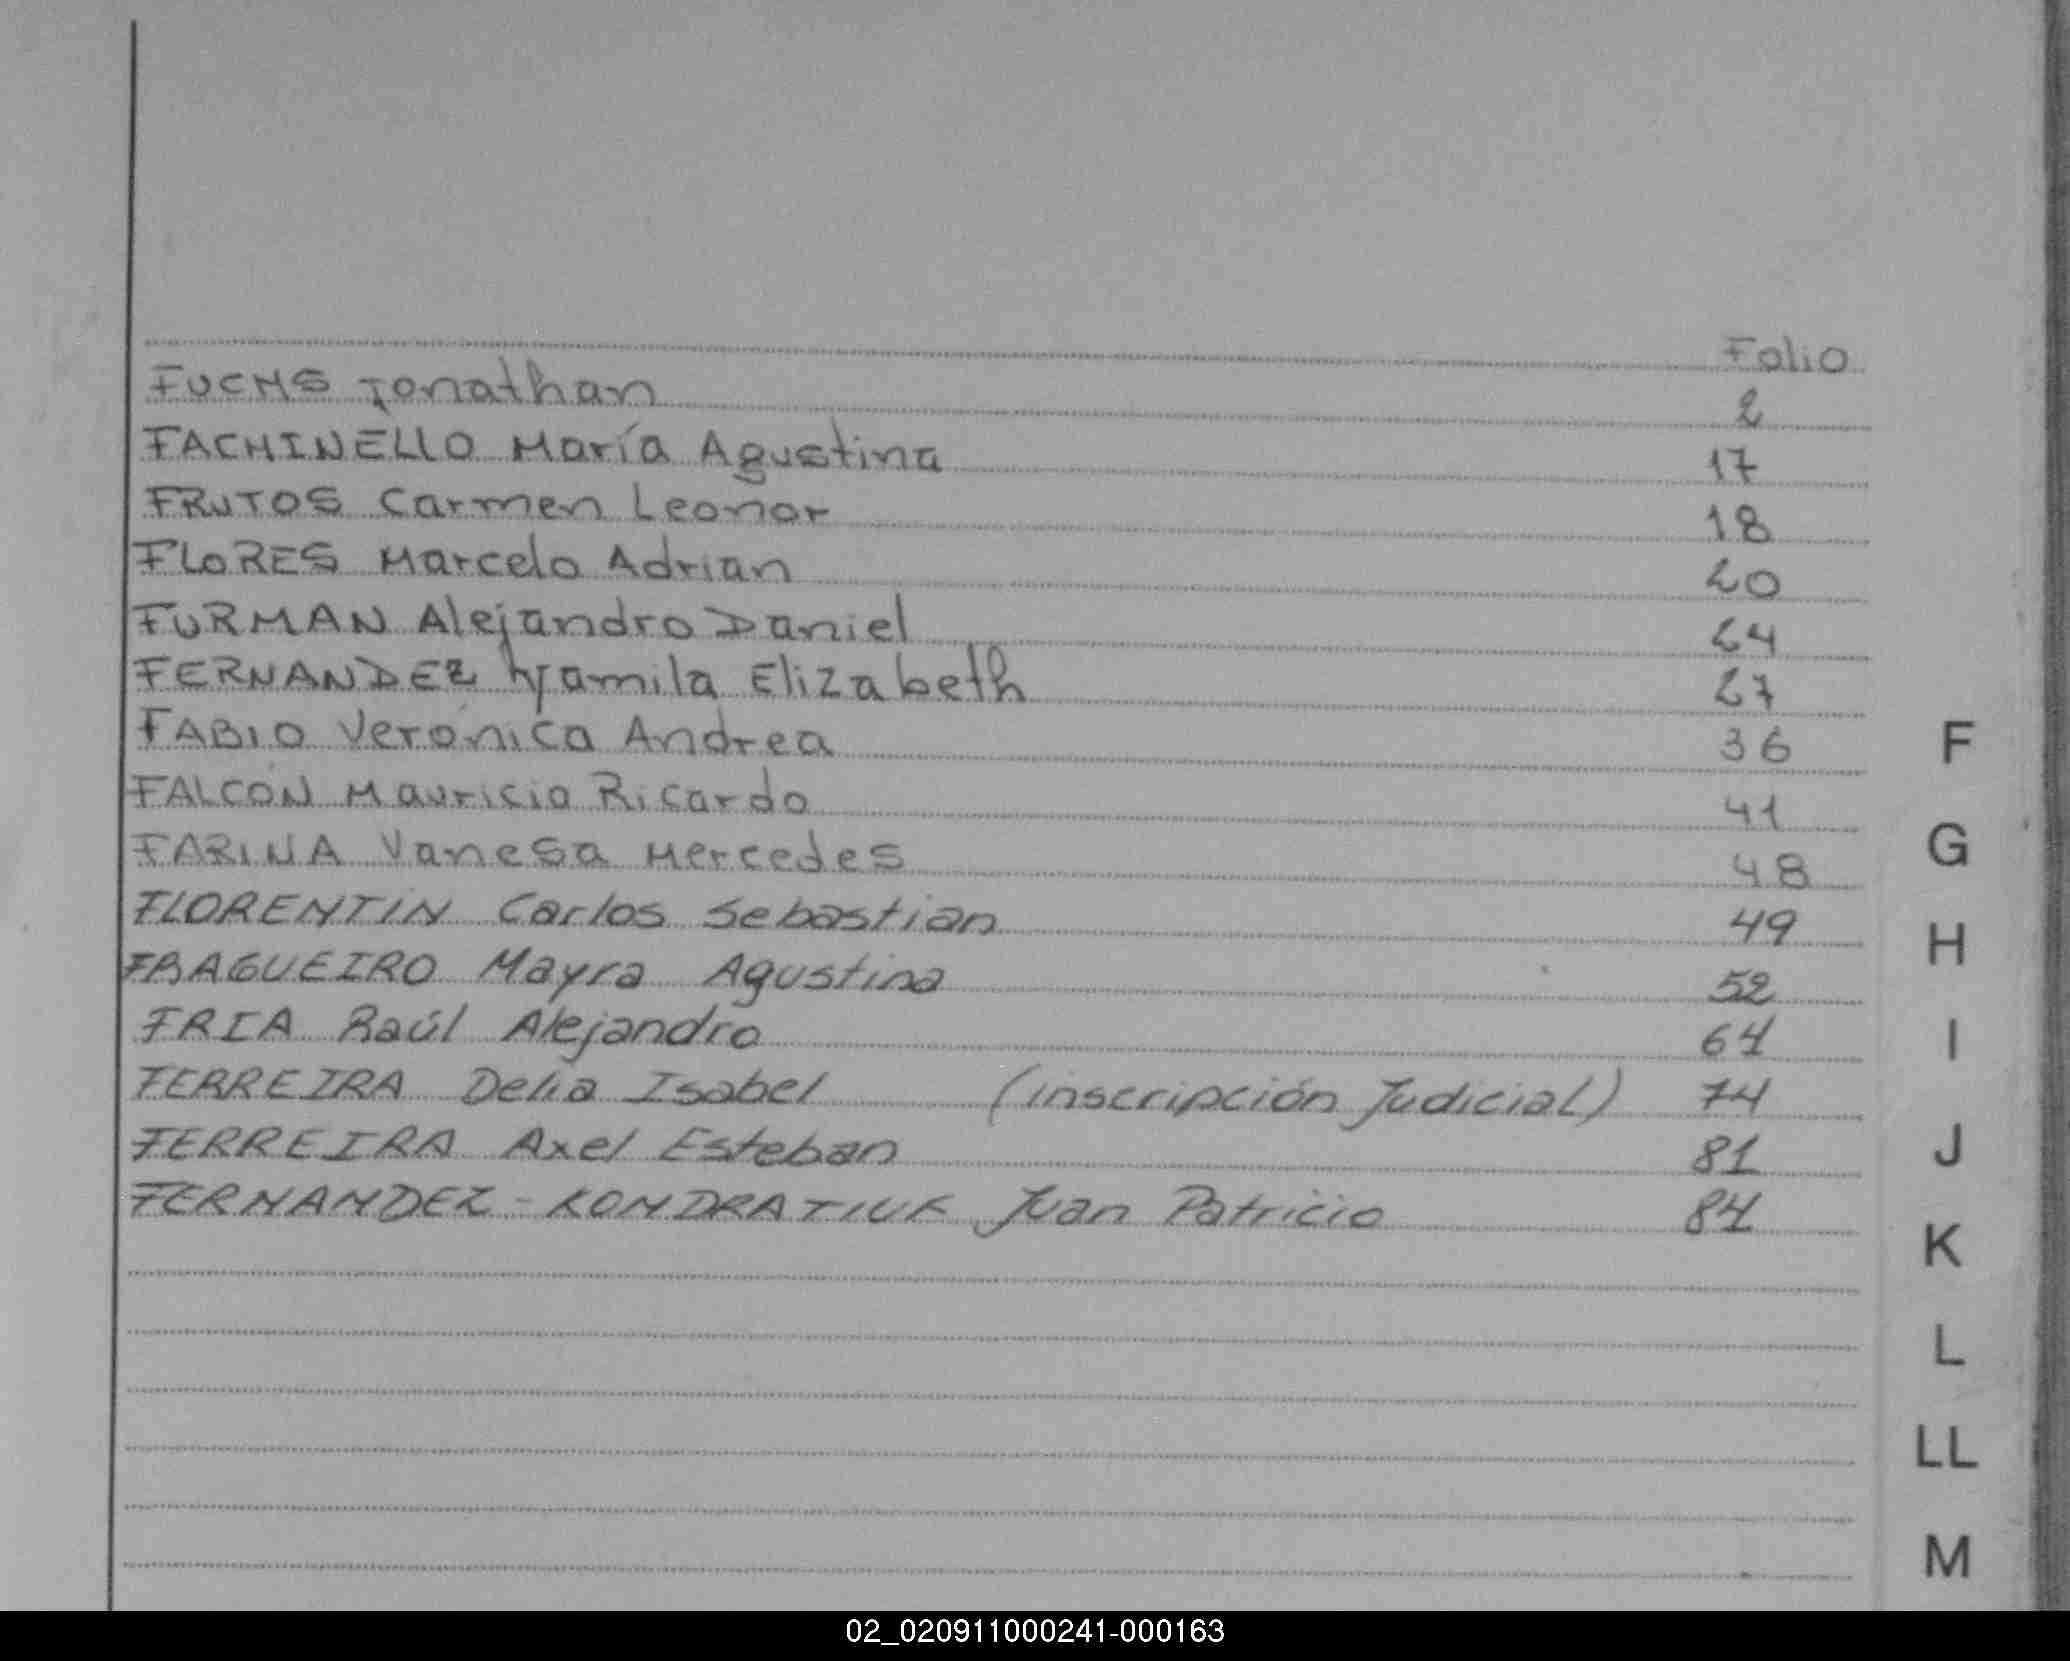 Folio
FUCHS Jonathan 2
FACHINELLO María Agustina 17
FRUTOS Carmen Leonor 18
FLORES Marcelo Adrian 20
FURMAN Alejandro Daniel 24
FERNANDEZ Yamila Elizabeth 27
FABIO Verónica Andrea 36
FALCÓN Mauricio Ricardo 41
FARINA Vanesa Mercedes 48
FLORENTÍN Carlos Sebastián 49
FRAGUEIRO Mayra Agustina 52
FRIA Raúl Alejandro 64
FERREIRA Delia Isabel (inscripción Judicial) 74
FERREIRA Axel Esteban 81
FERNANDEZ - KONDRATIUK Juan Patricio 84
F
G
H
I
J
K
L
LL
M
02_020911000241-000163